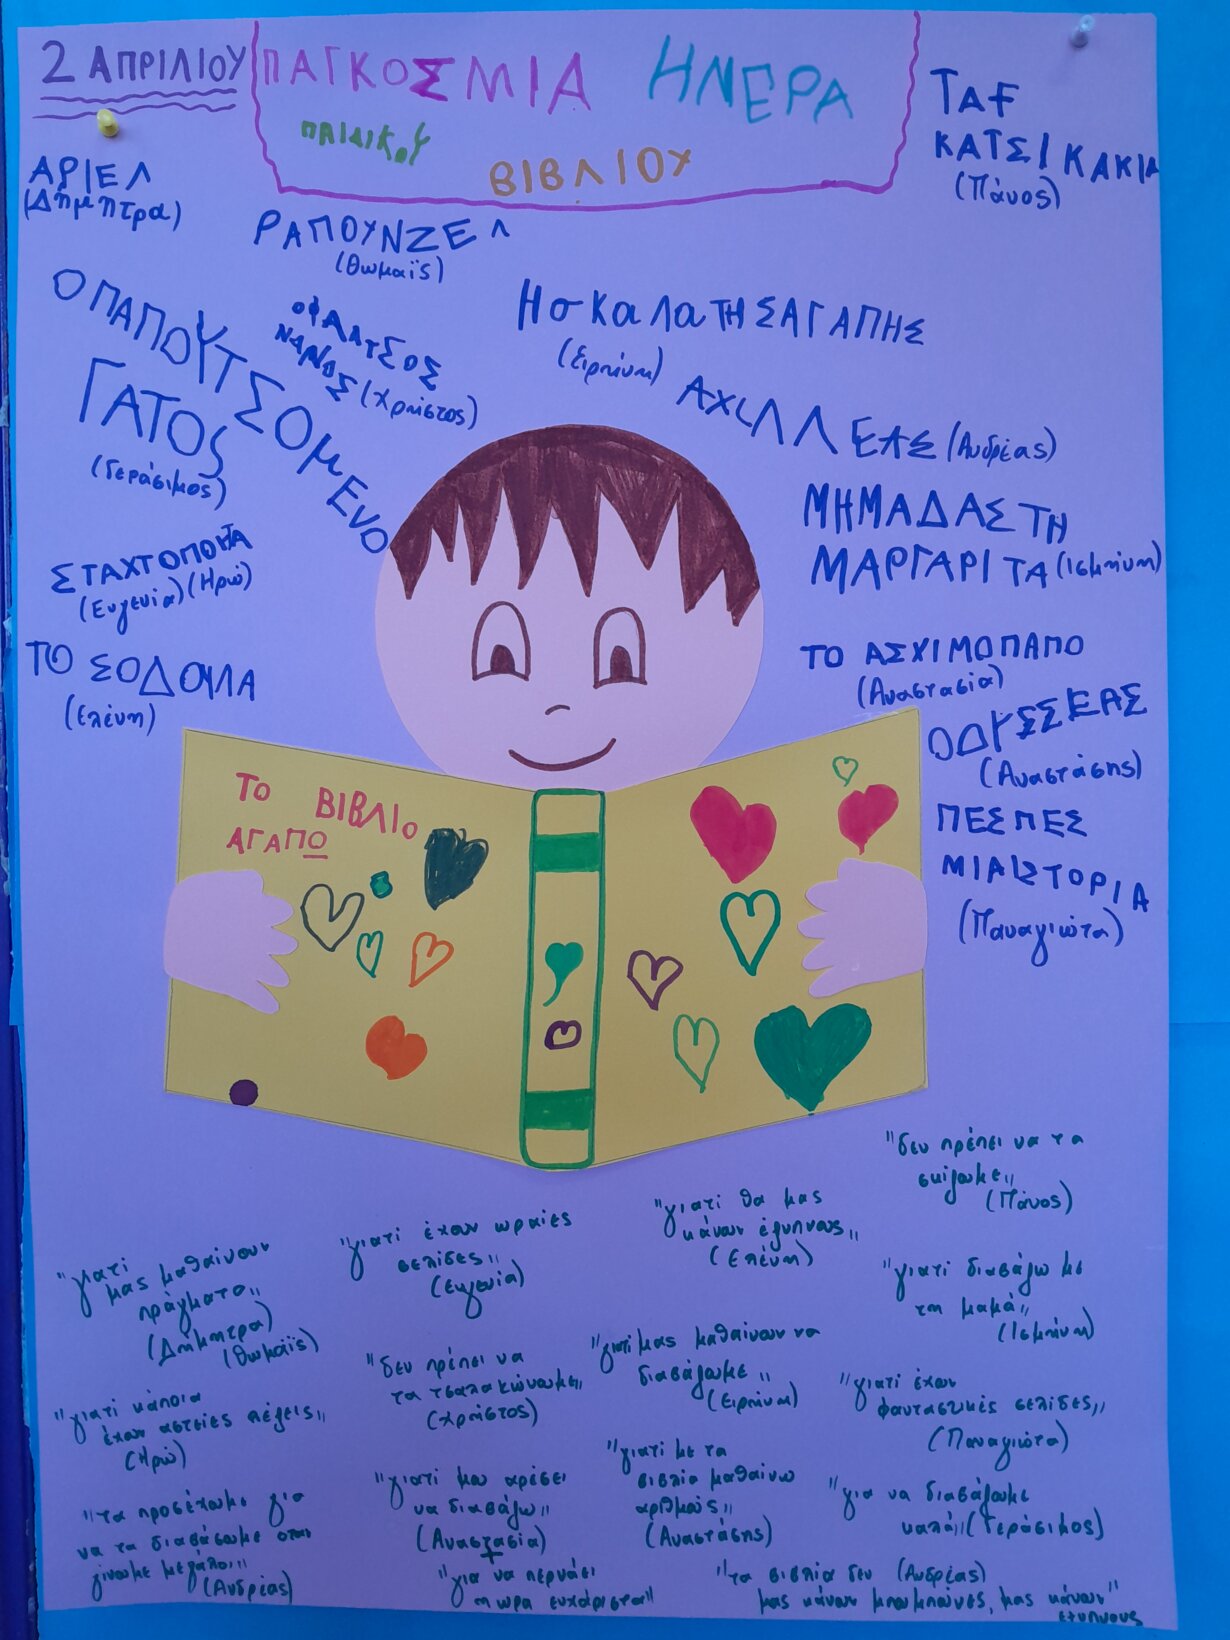 2 ΑΠΡΙΛΙΟΥ
ΠΑΓΚΟΣΜΙΑ ΗΜΕΡΑ
ΠΑΙΔΙΚΟΥ
ΒΙΒΛΙΟΥ
ΤΑ F
ΚΑΤΣΙΚΑΚΙΑ
(Πάνος)
ΑΡΙΕΛ
(Δήμητρα)
ΡΑΠΟΥΝΖΕΛ
(Θωμαΐς)
Ο ΠΑΠΟΥΤΣΟΜΕΝΟ
ΓΑΤΟς
(Γεράσιμος)
ΟΦΑΛΤΣΟΣ
ΝΑΝΟΣ (Χρήστος)
Η σΚαΛα ΤΗΣ ΑΓΑΠΗΣ
(Ειρήνη)
ΑΧΙΛΛΕΑΣ (Ανδρέας)
ΜΗ ΜΑΔΑΣ ΤΗ
ΜΑΡΓΑΡΙΤΑ (Ισμήνη)
ΣΤΑΧΤΟΠΟΥΤΑ
(Ευγενία) (Ηρώ)
ΤΟ ΣΟΔΟΥΛΑ
(Ελένη)
ΤΟ ΑΣΧΙΜΟΠΑΠΟ
(Αναστασία)
ΟΔΥΣΣΕΑΣ
(Αναστάσης)
ΠΕΣ ΠΕΣ
ΜΙΑ ΙΣΤΟΡΙΑ
(Παναγιώτα)
ΤΟ ΒΙΒΛΙΟ
ΑΓΑΠΩ
"δεν πρέπει να τα
σκίζουμε"
(Πάνος)
"γιατί θα μας
κάνουν έξυπνους"
(Ελένη)
"γιατί έχουν ωραίες
σελίδες"
(Ευγενία)
"γιατί
μας μαθαίνουν
πράγματα"
(Δήμητρα)
(Θωμαΐς)
"γιατί διαβάζω με
τη μαμά"
(Ισμήνη)
"γιατί μας μαθαίνουν να
διαβάζουμε"
(Ειρήνη)
"δεν πρέπει να
τα τσαλακώνουμε"
(Χρήστος)
"γιατί κάποια
έχουν αστείες λέξεις"
(Ηρώ)
"γιατί έχουν
φανταστικές σελίδες"
(Παναγιώτα)
"γιατί με τα
βιβλία μαθαίνω
αριθμούς"
(Αναστάσης)
"γιατί μου αρέσει
να διαβάζω"
(Αναστασία)
+
"για να περνάει
η ώρα ευχάριστα"
"τα προσέχουμε για
να τα διαβάσουμε όταν
γίνουμε μεγάλοι"
(Ανδρέας)
"για να διαβάζουμε
καλά" (Γεράσιμος)
"τα βιβλία δεν (Ανδρέας)
μας κάνουν μπουμπούνες, μας κάνουν"
έξυπνους